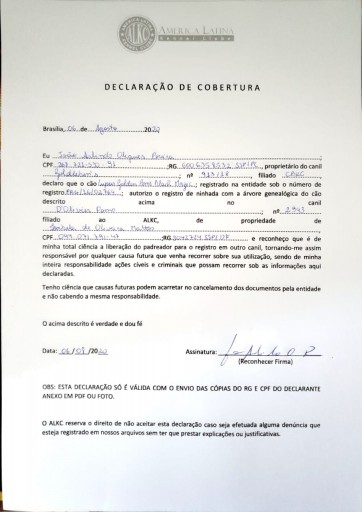 ALKC
AMERICA LATINA
Kennel Clube
DECLARAÇÃO DE COBERTURA
Brasília, 06 de Agosto 2020
Eu João Arlindo
CPF RG 6006358032 SSP/PC, proprietário do canil
nº , filiado CBKC
declara que o cão Golden Black Magic; registrado na entidade sob o número de
registro autorizo o registro de ninhada com a árvore genealógica do cão
descrito acima no canil
nº 2943
filiado ao ALKC, de propriedade de
de Oliveira
CPF RG SSP/DF e reconheço que é de
minha total ciência a liberação do padreador para o registro em outro canil, tornando-me assim
responsável por qualquer causa futura que venha recorrer sobre sua utilização, sendo de minha
inteira responsabilidade ações cíveis e criminais que possam recorrer sob as informações aqui
declaradas.
Tenho ciência que causas futuras podem acarretar no cancelamento dos documentos pela entidade
e não cabendo a mesma responsabilidade.
O acima descrito é verdade e dou fé
Data: 06/08/2020 Assinatura:
(Reconhecer Firma)
OBS: ESTA DECLARAÇÃO SÓ É VÁLIDA COM O ENVIO DAS CÓPIAS DO RG E CPF DO DECLARANTE
ANEXO EM PDF OU FOTO.
O ALKC reserva o direito de não aceitar esta declaração caso seja efetuada alguma denúncia que
esteja registrado em nossos arquivos sem ter que prestar explicações ou justificativas.